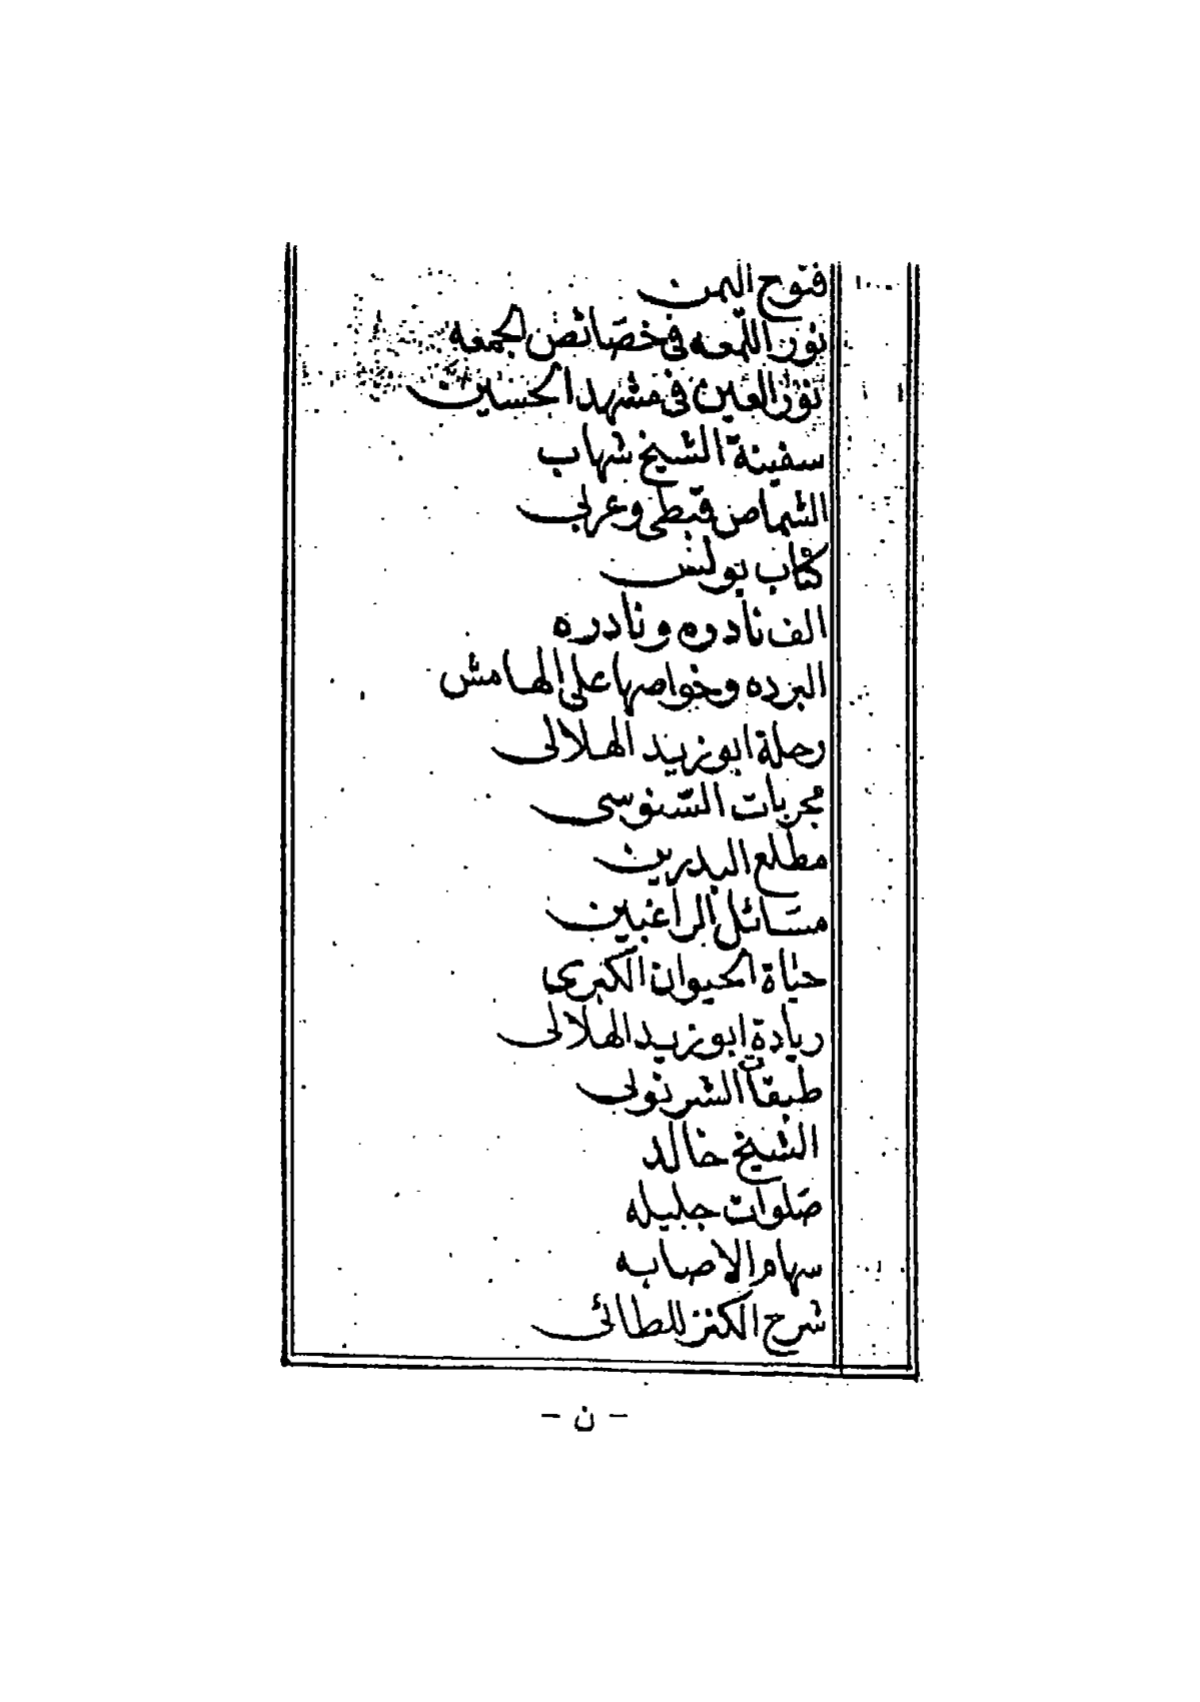 فتوح اليمن
نور اللمعه في خصائص الجمعه
نور العين في مشهد الحسين
سفينة الشيخ شهاب
الشماص قبطى وعربى
كتاب بولس
الف نادره ونادره
البرده وخواصها على الهامش
رحلة ابوزيد الهلالى
مجربات السنوسى
مطلع البدرين
مسائل الراغبين
حياة الحيوان الكبرى
ريادة ابوزيد الهلالى
طبقات الشرنوبى
الشيخ خالد
صلوات جليله
سهام الاصابه
شرح الكنز للطائى
- ن -